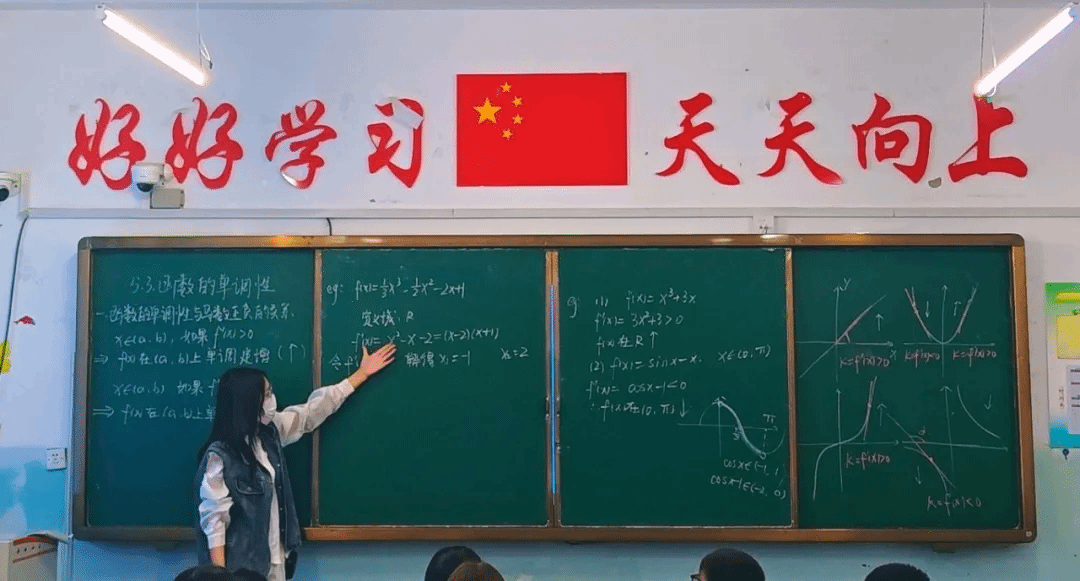 好好学习 天天向上
5.3.函数的单调性
一.函数的单调性与导数正负的关系.
x∈(a,b), 如果 f'(x)>0
⇒ f(x)在(a,b)上单调递增 (↑)
x∈(a,b) 如果 f'
⇒ f(x)在(a,b)上单
eg: f(x)=⅓x³-½x²-2x+1
定义域: R
f'(x)= x²-x-2=(x-2)(x+1)
令f' 解得 x₁=-1 x₂=2
eg: (1) f(x)=x³+3x
f'(x)= 3x²+3>0
f(x)在R↑
(2) f(x)=sinx-x. x∈(0,π)
f'(x)= cosx-1<0
∴ f(x)在(0,π)↓
π
cosx∈(-1,1
cosx-1∈(-2,0)
y
k=f'(x)>0
k=f'(x)>0
k=f'(x)<0